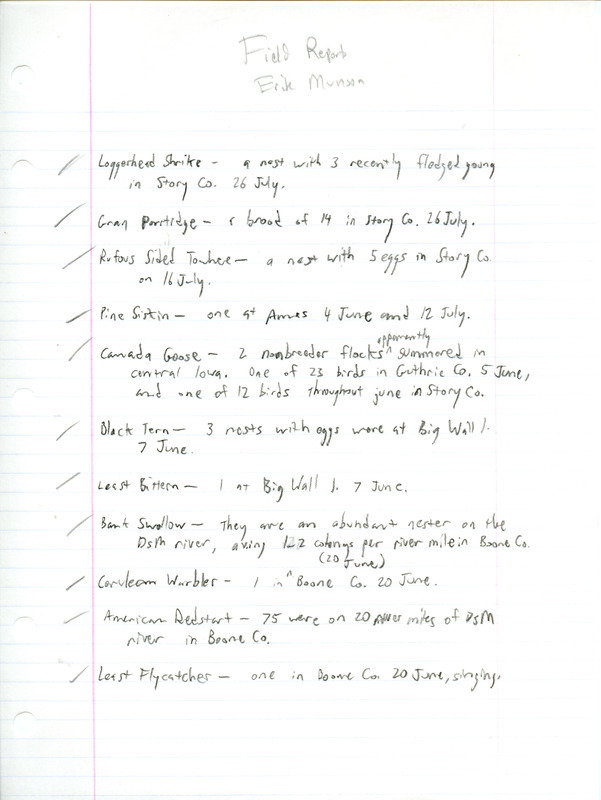 Field Report
Erik Munson
Loggerhead Shrike - a nest with 3 recently fledged young
in Story Co. 26 July.
Gray Partridge - a brood of 14 in Story Co. 26 July.
Rufous Sided Towhee - a nest with 5 eggs in Story Co.
on 16 July.
Pine Siskin - one at Ames 4 June and 12 July.
apparently
Canada Goose - 2 nonbreeder flocks ^ summered in
central Iowa. One of 23 birds in Guthrie Co. 5 June,
and one of 12 birds throughout june in Story Co.
Black Tern - 3 nests with eggs were at Big Wall L.
7 June.
Least Bittern - 1 at Big Wall L. 7 June.
Bank Swallow - They are an abundant nester on the
DsM river, aving colonys per river mile in Boone Co.
(20 June)
Cerulean Warbler - 1 in ^ Boone Co. 20 June.
American Redstart - 75 were on 20 miles of DsM
river in Boone Co.
Least Flycatcher - one in Boone Co. 20 June, singing.